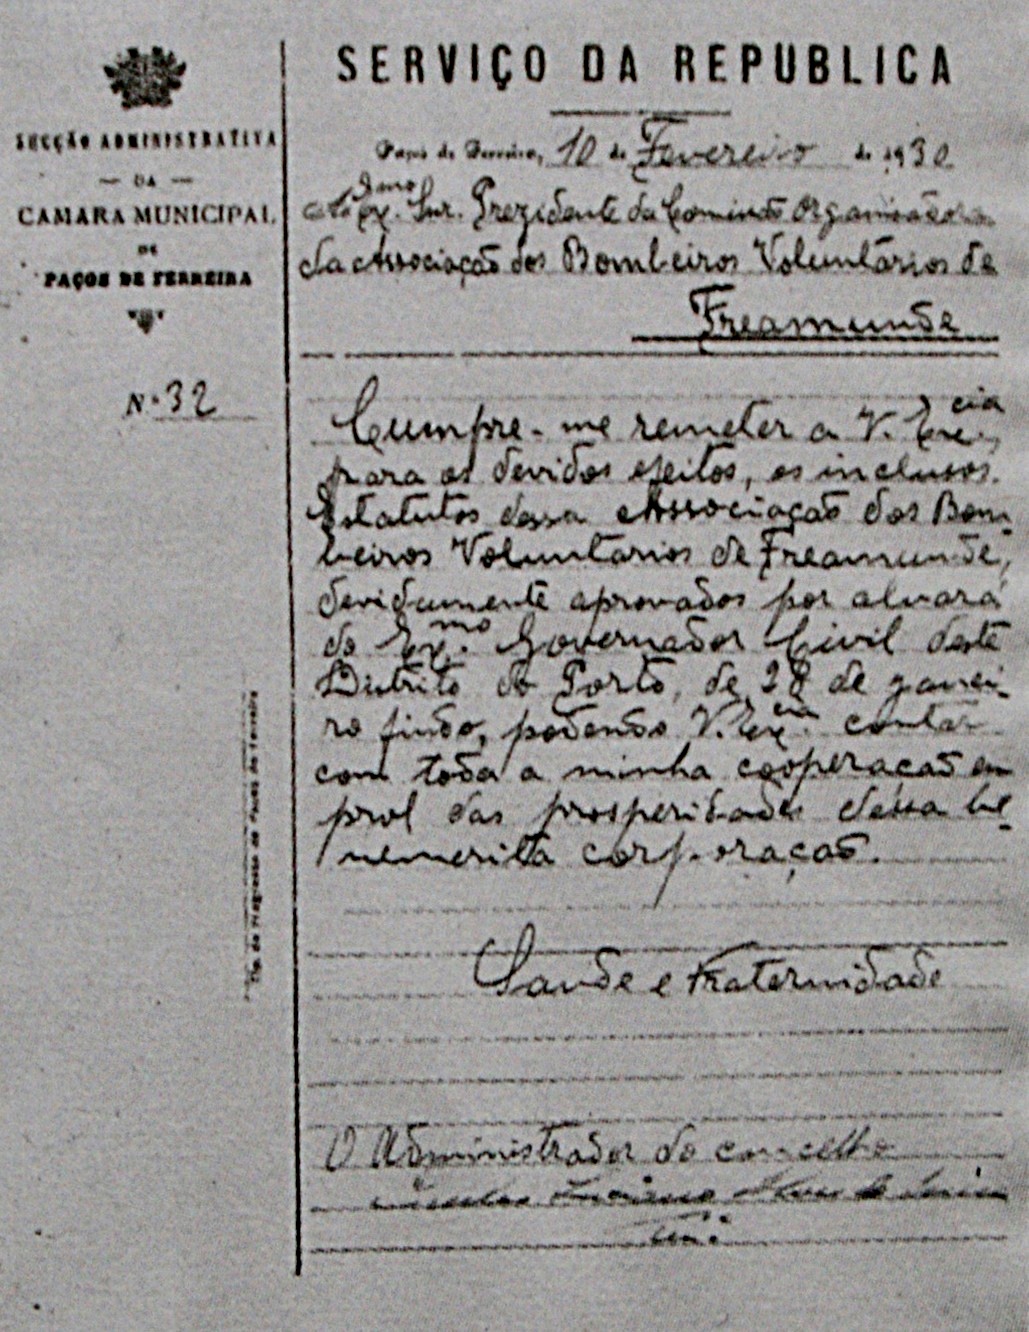 SERVIÇO DA REPUBLICA
SECÇÃO ADMINISTRATIVA
— DA —
CAMARA MUNICIPAL
DE
PAÇOS DE FERREIRA
N.º 32
Paços de Ferreira, 10 de Fevereiro de 1930
Ao Exmo. Snr. Prezidente da Comissão Organisadora
da Associação dos Bombeiros Voluntários de
Freamunde
Cumpre-me remeter a V. Excia,
para os devidos efeitos, os inclusos
Estatutos dessa Associação dos Bom-
beiros Voluntarios de Freamunde,
devidamente aprovados por alvará
do Exmo. Governador Civil deste
Distrito do Porto, de 28 de janei-
ro findo, podendo V. Excia. contar
com toda a minha cooperação em
prol das prosperidades dessa be-
nemerita corporação.
Saude e Fraternidade
O Administrador do concelho
Luciano Alves de
Tip. do Progresso de Paços de Ferreira